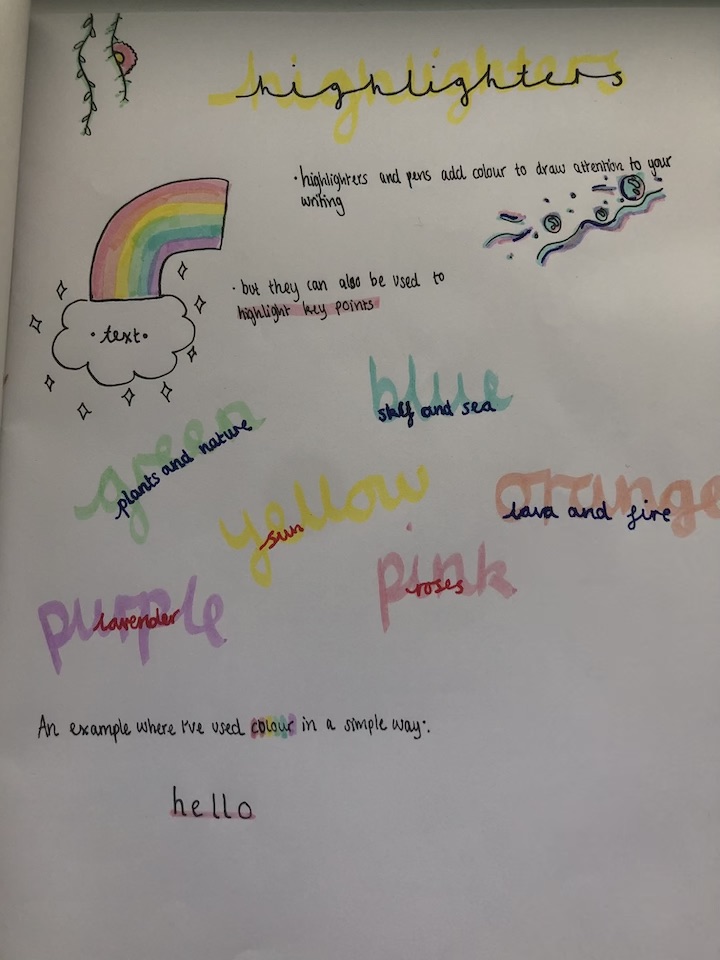 highlighters
• highlighters and pens add colour to draw attention to your
writing
• but they can also be used to
highlight key points
• text •
blue
sky and sea
green
plants and nature
yellow
sun
orange
lava and fire
pink
roses
purple
lavender
An example where I've used colour in a simple way:.
hello